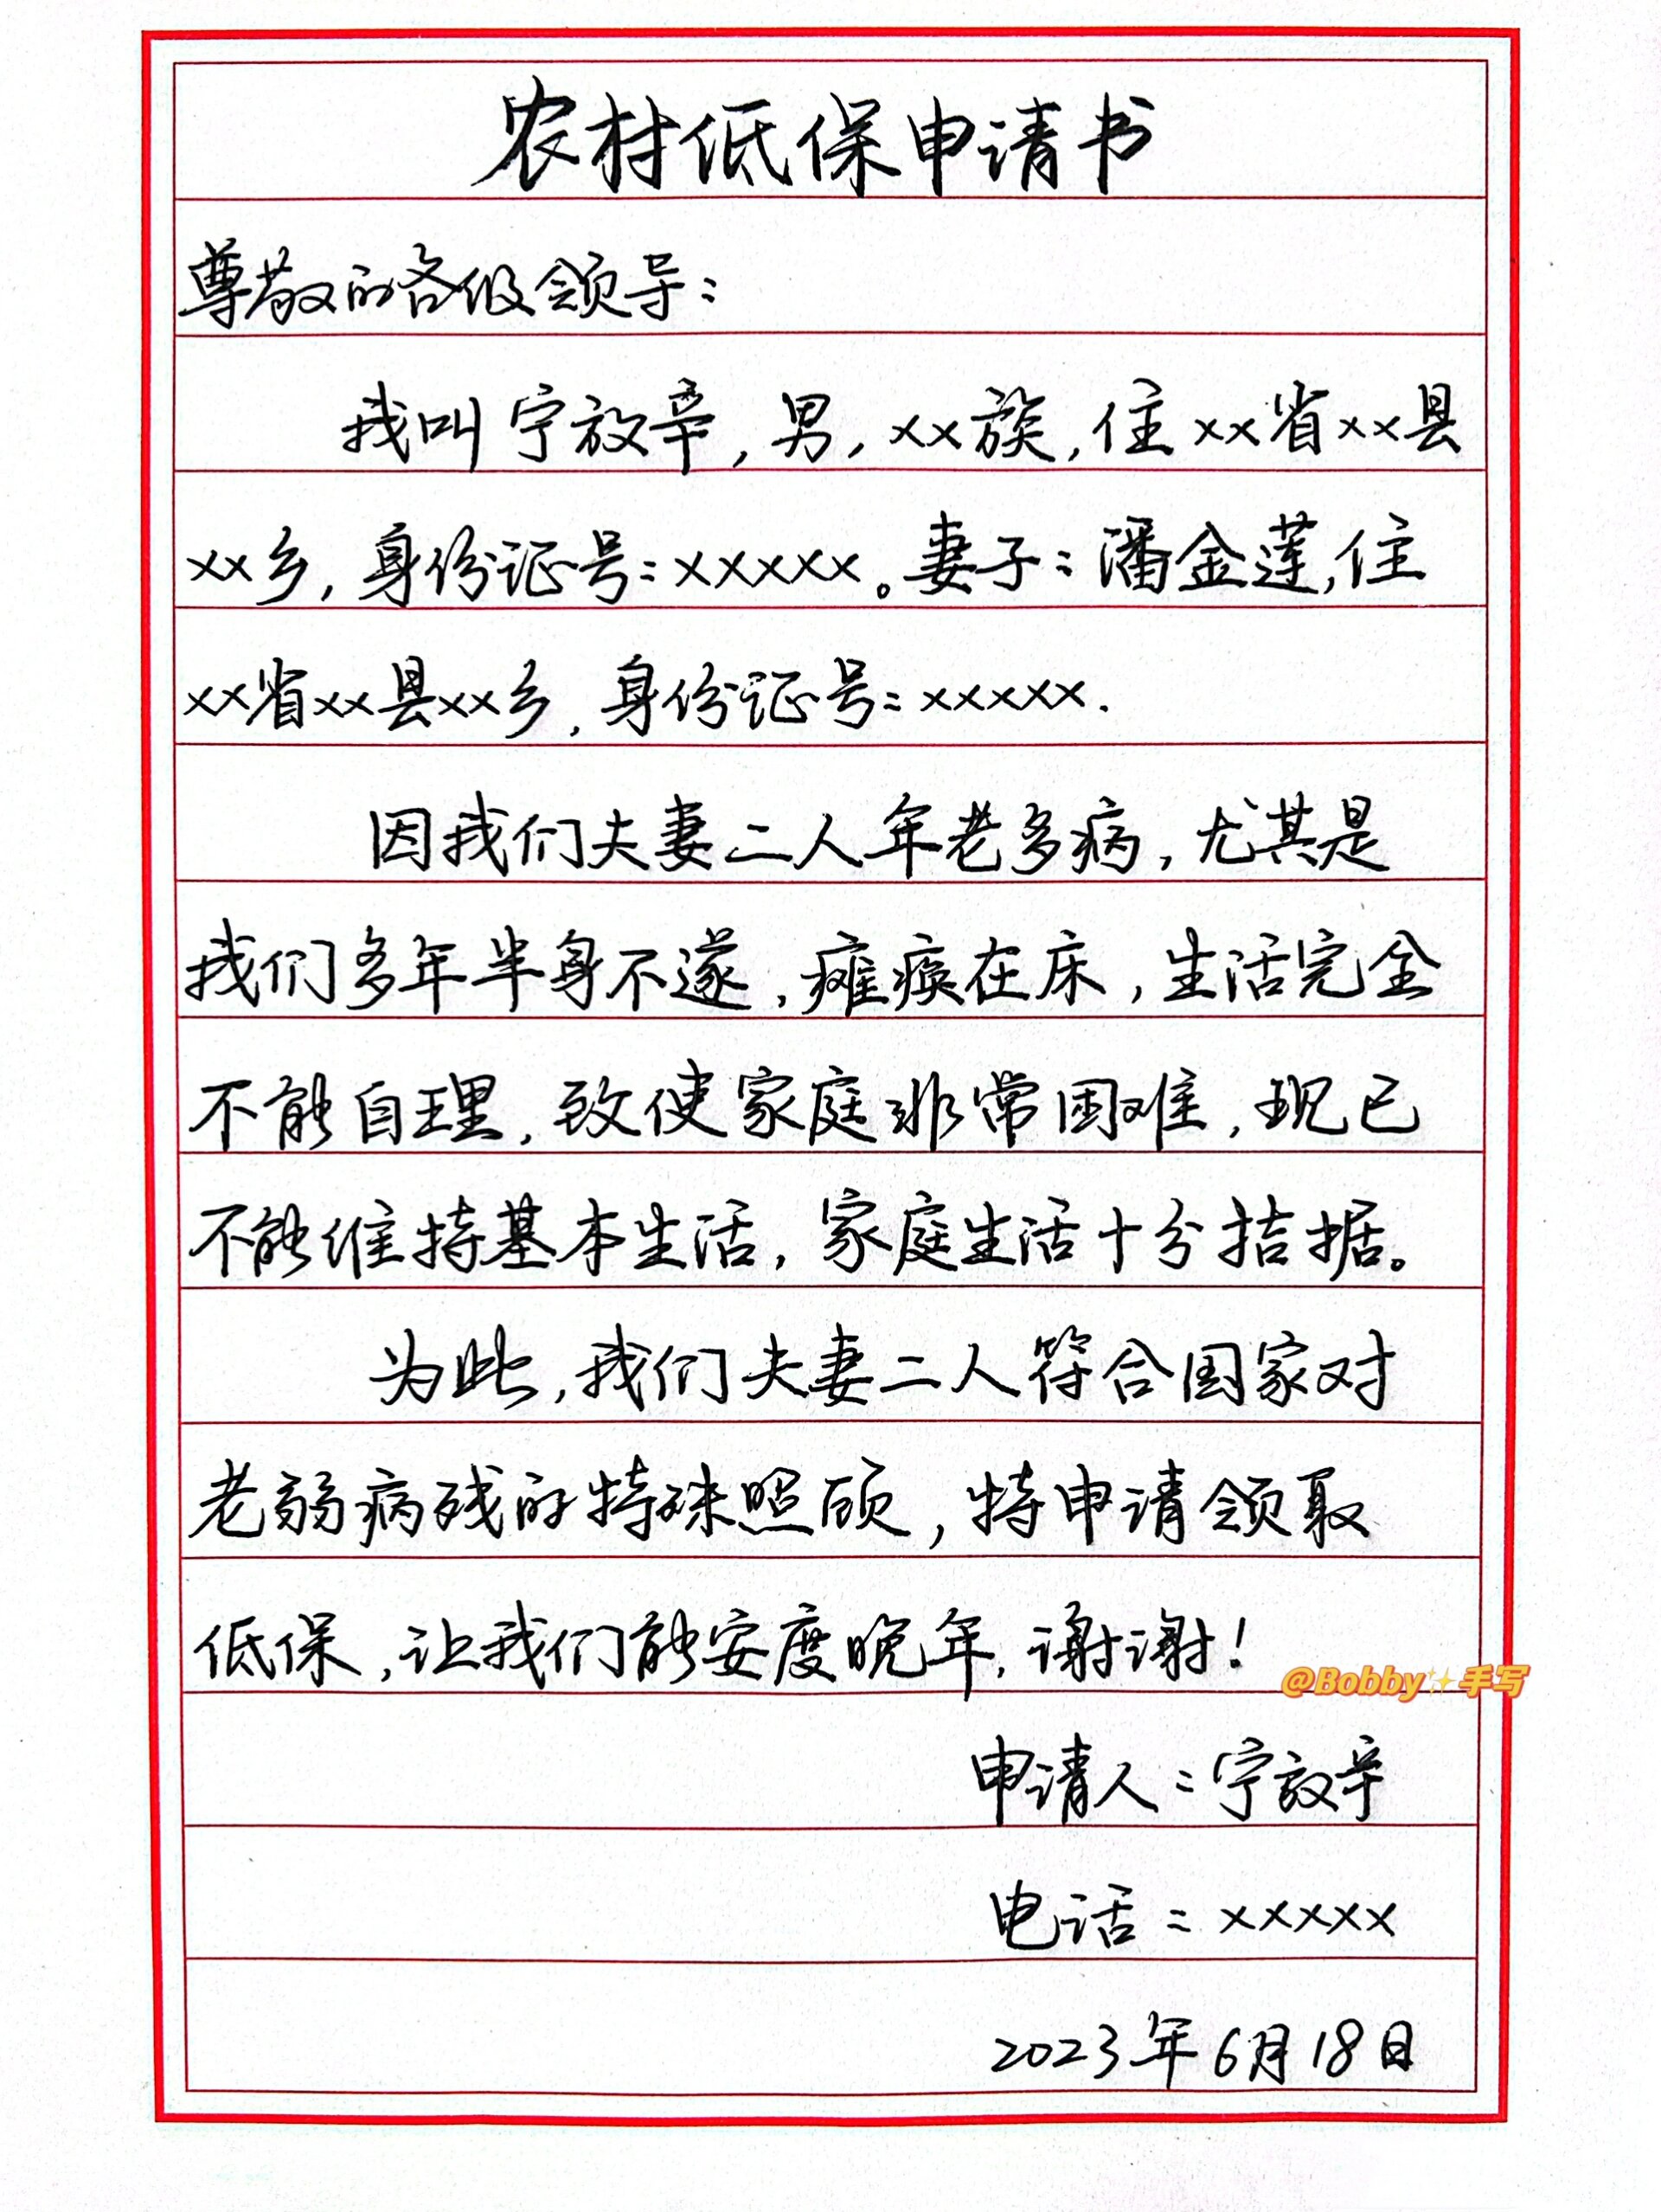 农村低保申请书
尊敬的各级领导：
我叫宁放辛，男，xx族，住xx省xx县
xx乡，身份证号：xxxxx。妻子：潘金莲，住
xx省xx县xx乡，身份证号：xxxxx.
因我们夫妻二人年老多病，尤其是
我们多年半身不遂，瘫痪在床，生活完全
不能自理，致使家庭非常困难，现已
不能维持基本生活，家庭生活十分拮据。
为此，我们夫妻二人符合国家对
老弱病残的特殊照顾，特申请领取
低保，让我们能安度晚年，谢谢！
@Bobby✨手写
申请人：宁放辛
电话：xxxxx
2023年6月18日